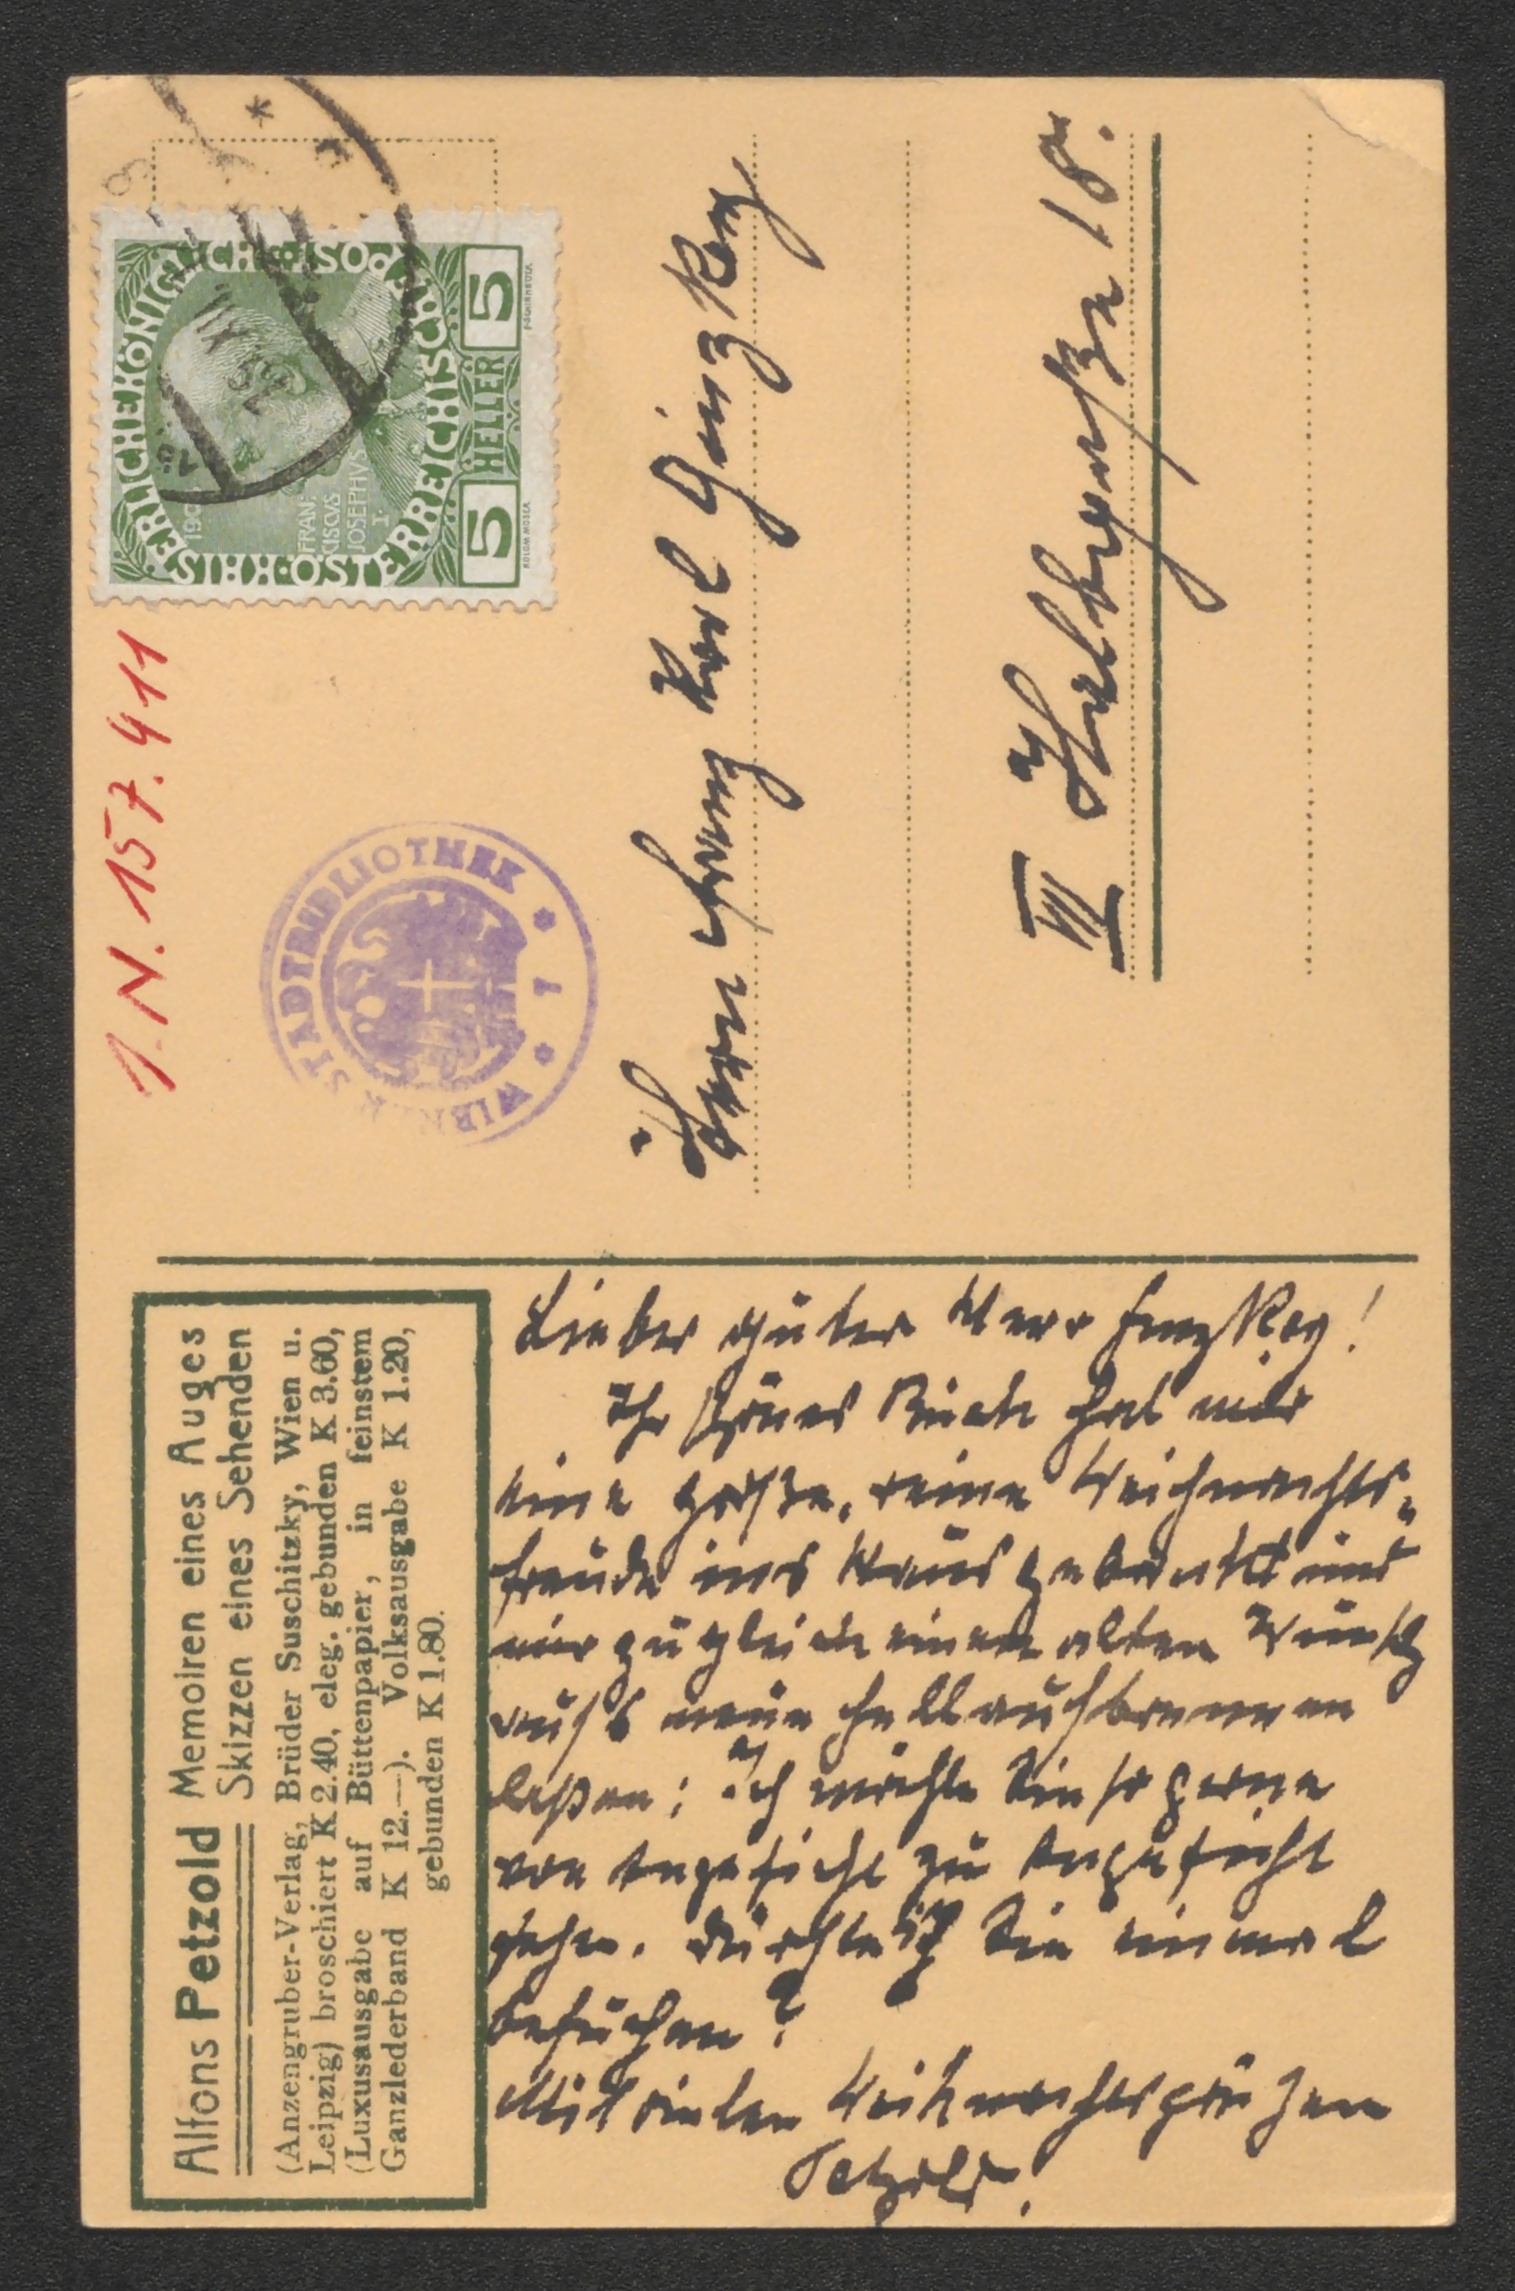 Alfons Petzold Memoiren eines Auges
Skizzen eines Sehenden
(Anzengruber-Verlag, Brüder Suschitzky, Wien u.
Leipzig) broschiert K 2.40, eleg. gebunden K 3.60,
(Luxusausgabe auf Büttenpapier, in feinstem
Ganzlederband K 12.—). Volksausgabe K 1.20,
gebunden K 1.80.
Lieber guter Herr Ginzkey!
Ihr schönes Buch hat mir
eine große, reine Weihnachts-
freude ins Haus gebracht und
mir zugleich einen alten Wunsch
aufs neue hell aufbrennen
laßen: Ich möchte Sie so gerne
von Angesicht zu Angesicht
sehen. Dürfte ich Sie einmal
besuchen?
Mit vielen Weihnachtsgrüßen
Petzold.
I.N. 157.411
WIENER STADTBIBLIOTHEK * 1 *
KAISERLICHE KÖNIGLICHE ÖSTERREICHISCHE POST
FRAN:
CISCVS
JOSEPHVS
I.
5 HELLER 5
KOLOM. MOSER
XII
Herrn Franz Karl Ginzkey
VII Halbgasse 18.